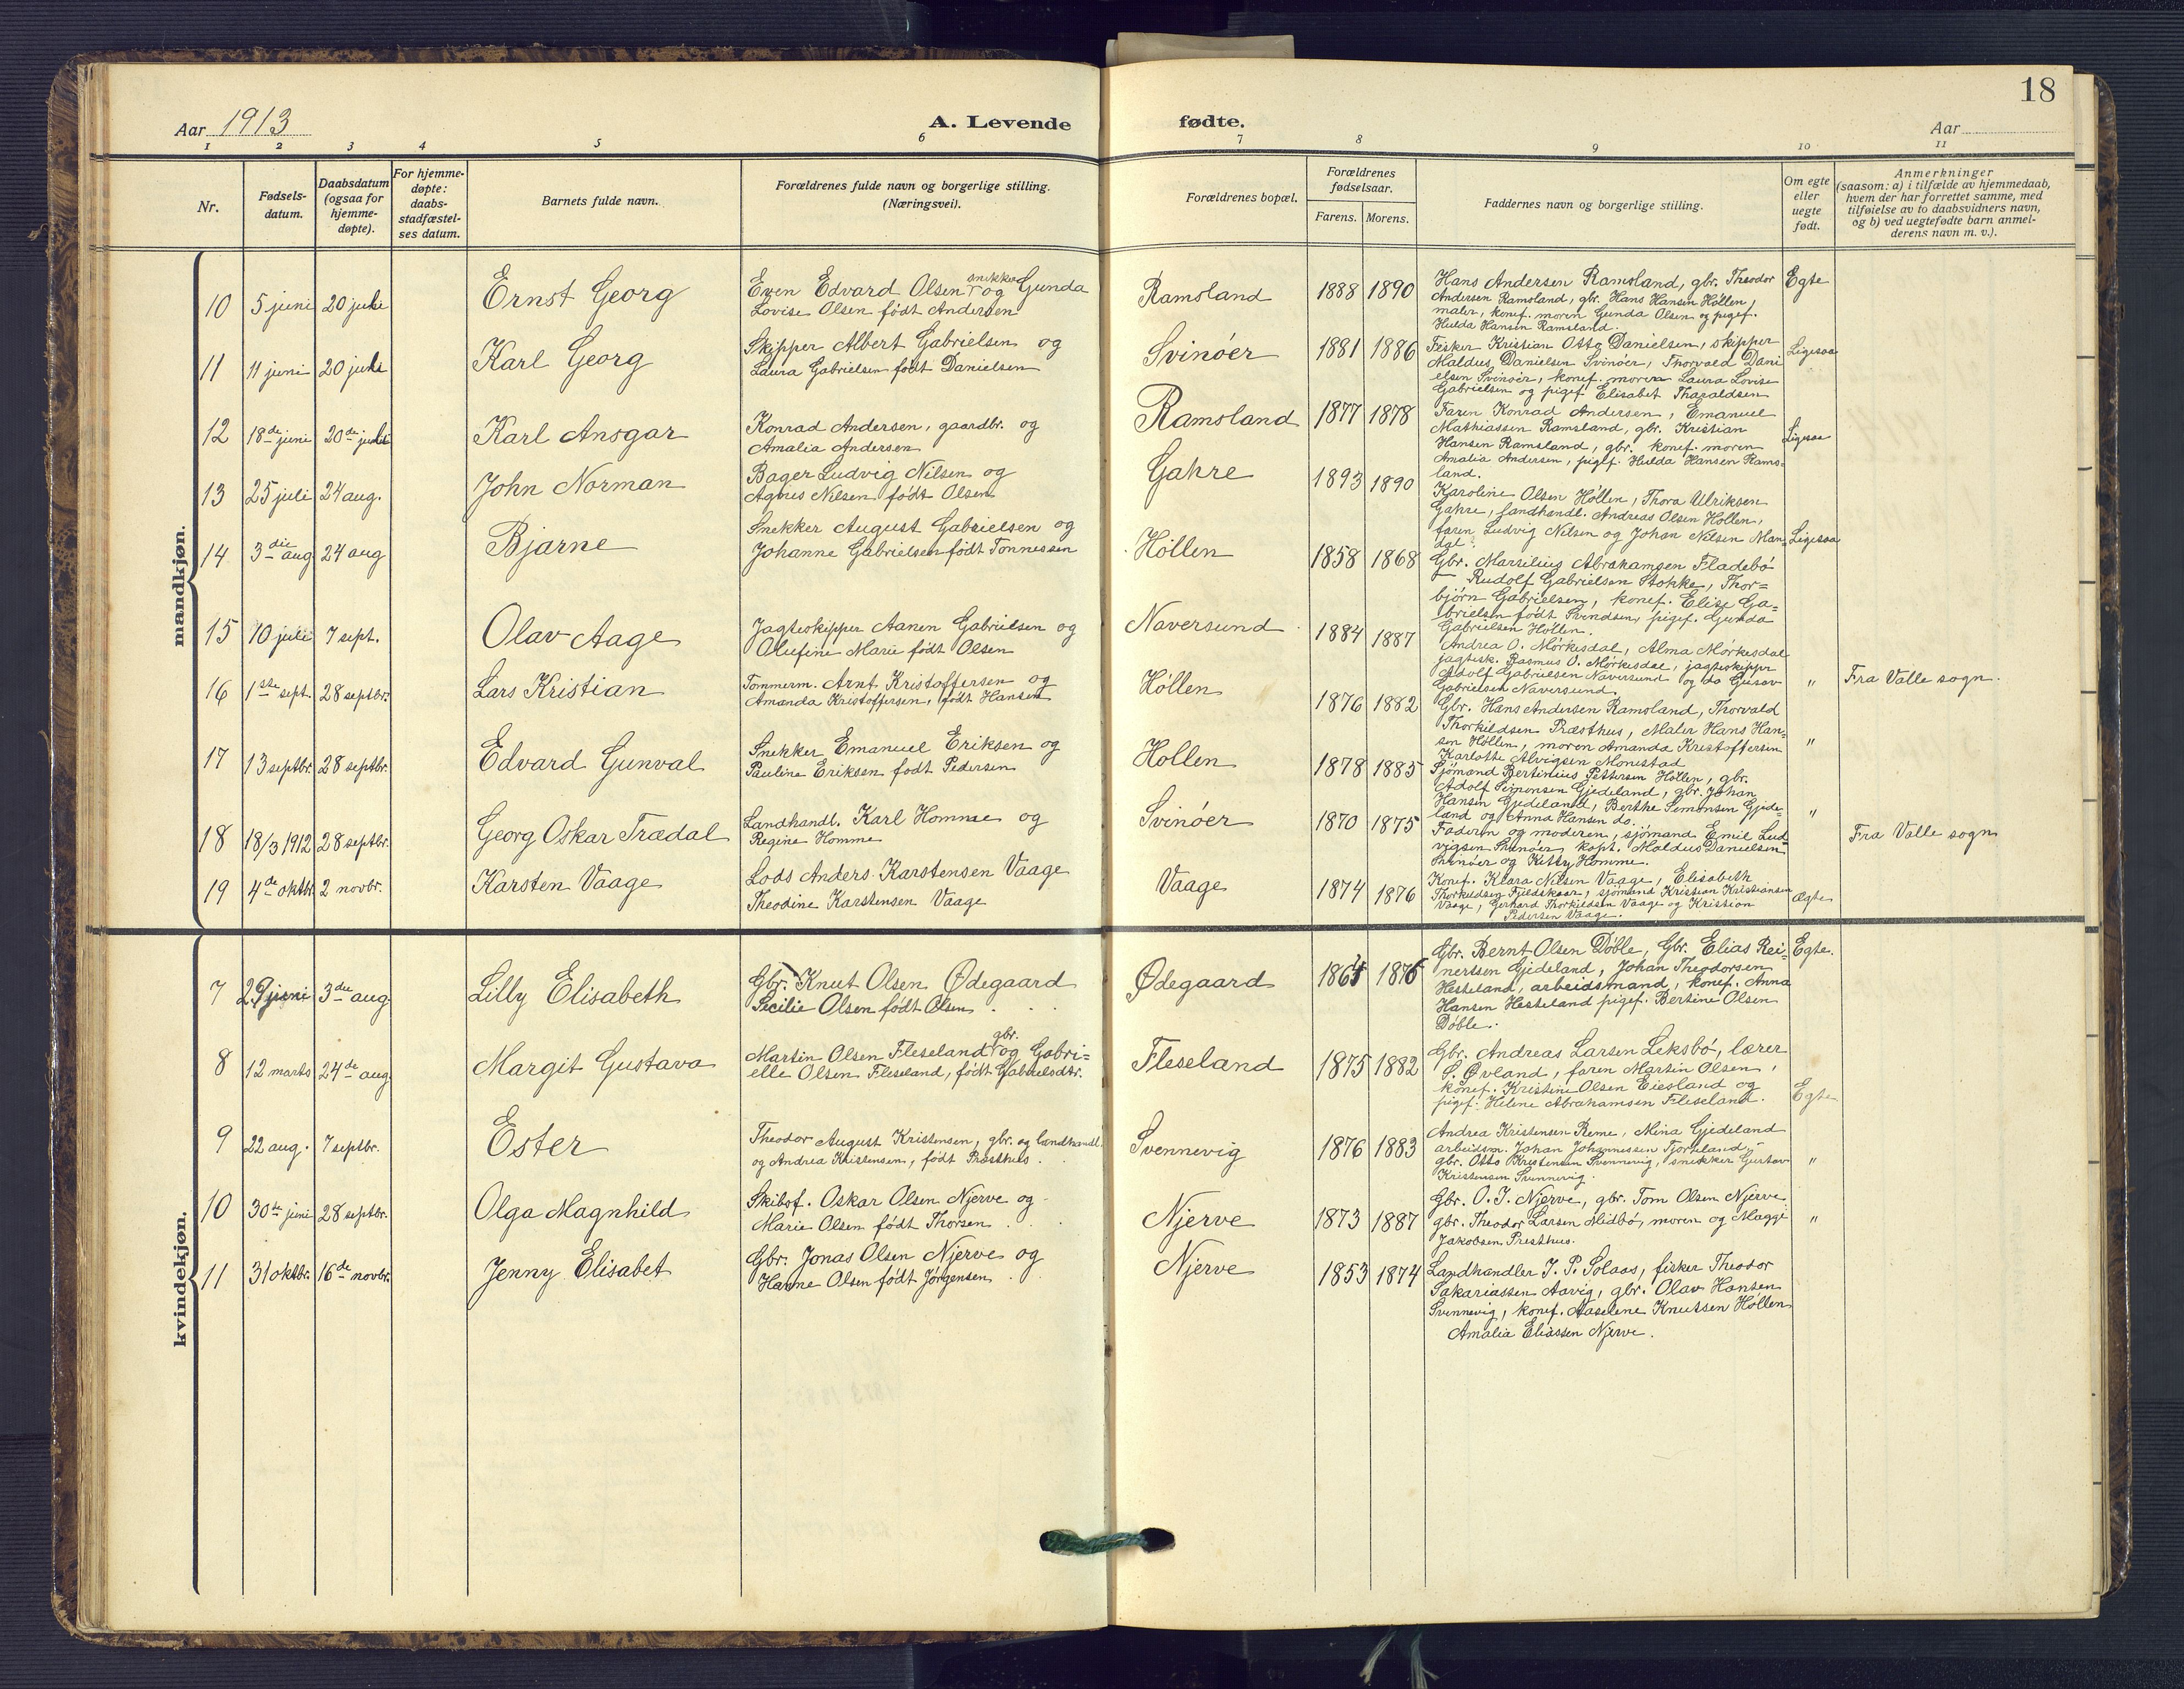 18
Aar 1913
A. Levende fødte.
Aar
1 2 3 4 5 6 7 8 9 10 11
Nr.
Fødsels-
datum.
Daabsdatum
(ogsaa for
hjemme-
døpte).
For hjemme-
døpte:
daabs-
stadfæstel-
ses datum.
Barnets fulde navn.
Forældrenes fulde navn og borgerlige stilling.
(Næringsvei).
Forældrenes bopæl.
Forældrenes
fødselsaar.
Farens. Morens.
Faddernes navn og borgerlige stilling.
Om egte
eller
uegte
født.
Anmerkninger
(saasom: a) i tilfælde av hjemmedaab,
hvem der har forrettet samme, med
tilføielse av to daabsvidners navn,
og b) ved uegtefødte barn anmel-
derens navn m. v.).
mandkjøn.
10 5 juni 20 juli
Ernst Georg
Even Edvard Olsen snekker og Gunda
Lovise Olsen født Andersen
Ramsland
1888 1890
Hans Andersen Ramsland, gbr. Theodor
Andersen Ramsland, gbr. Hans Hansen Høllen,
maler, konef. moren Gunda Olsen og pigef.
Hulda Hansen Ramsland.
Egte
11 11 juni 20 juli
Karl Georg
Skipper Albert Gabrielsen og
Laura Gabrielsen født Danielsen
Svinöer
1881 1886
Fisker Kristian Otto Danielsen, skipper
Maldus Danielsen Svinöer, Thorvald Dani
elsen Svinöer, konef. moren Laura Lovise
Gabrielsen og pigef. Elisabet Tharaldsen
Ligesaa
12 18de juni 20de juli
Karl Ansgar
Konrad Andersen, gaardbr. og
Amalia Andersen
Ramsland
1877 1878
Faren Konrad Andersen, Emanuel
Mathiassen Ramsland, gbr. Kristian
Hansen Ramsland, gbr. konef. moren
Amalia Andersen, pigef. Hulda Hansen Rams=
land.
Ligesaa
13 25 juli 24 aug.
John Norman
Bager Ludvig Nilsen og
Agnes Nilsen født Olsen
Gahre
1893 1890
Karoline Olsen Höllen, Thora Ulriksen
Gahre, landhandl. Andreas Olsen Höllen,
faren Ludvig Nilsen og Johan Nilsen Man=
dal.
Ligesaa
14 3die aug 24 aug
Bjarne
Snekker August Gabrielsen og
Johanne Gabrielsen født Tönnessen
Höllen
1858 1868
Gbr. Marsilius Abrahamsen Fladebö
Rudolf Gabrielsen Stokke, Thor=
björn Gabrielsen, konef. Elise Ga=
brielsen født Svindsen, pigef. Gunda
Gabrielsen Höllen.
15 10 juli 7 sept.
Olav Aage
Jagteskipper Aanen Gabrielsen og
Olufine Marie født Olsen
Naversund
1884 1887
Andrea O. Mörkesdal, Alma Mörkesdal
jagtesk. Rasmus O. Mörkesdal, jagteskipper
Adolf Gabrielsen Naversund og do Gustav
Gabrielsen Naversund.
"
Fra Valle sogn.
16 1ste sept. 28 septbr.
Lars Kristian
Tommerm. Arnt Kristoffersen og
Amanda Kristoffersen, født Hansen
Höllen
1876 1882
Gbr. Hans Andersen Ramsland, Thorvald
Thorkildsen Præsthus, Maler Hans Han=
sen Höllen, moren Amanda Kristoffersen
Karlotte Alvigsen Monestad
"
17 13 septbr. 28 septbr.
Edvard Gunval
Snekker Emanuel Eriksen og
Pauline Eriksen født Pedersen
Höllen
1878 1885
Sjömand Bertinius Pettersen Höllen, gbr.
Adolf Simonsen Gjedeland, gbr. Johan
Hansen Gjedeland, Berthe Simonsen Gjede=
land og Anna Hansen do.
"
18 18/3 1912 28 septbr.
Georg Oskar Trædal
Landhandl. Karl Homme og
Regine Homme
Svinöer
1870 1875
Faderen og moderen, sjömand Emil Lud
vigsen Svinöer kapt. Maldus Danielsen
Svinöer og Kitty Homme.
Fra Valle sogn
19 4de oktbr. 2 novbr.
Karsten Vaage
Lods Anders Karstensen Vaage
Theodine Karstensen Vaage
Vaage
1874 1876
Konef. Klara Nilsen Vaage, Elisabeth
Thorkildsen Fjeldskaar, sjömand Kristian Kristiansen
Vaage, Gerhard Thorkildsen Vaage og Kristian
Pedersen Vaage.
Ægte
kvindekjøn.
7 29 juni 3die aug
Lilly Elisabeth
Gbr. Knut Olsen Ødegaard
Secilie Olsen født Olsen
Ødegaard
1864 1876
Gbr. Bernt Olsen Döble, Gbr. Elias Rei=
nertsen Gjedeland, Johan Theodorsen
Hesteland, arbeidsmand, konef. Anna
Hansen Hesteland pigef. Bertine Olsen
Döble.
Egte.
8 12 marts 24de aug.
Margit Gustava
Martin Olsen Fleseland gbr. og Gabri=
elle Olsen Fleseland, født Gabrielsdtr.
Fleseland
1875 1882
Gbr. Andreas Larsen Leksbö, lærer
S. Øvland, faren Martin Olsen,
konef. Kristine Olsen Eiesland og
pigef. Helene Abrahamsen Fleseland.
Egte
9 22 aug. 7 septbr.
Ester
Theodor August Kristensen, gbr. og landhandl.
og Andrea Kristensen, født Præsthus
Svennevig
1876 1883
Andrea Kristensen Reme, Mina Gjedeland
arbeidsm. Johan Johannessen Tjomeland,
gbr. Otto Kristensen Svennevig, snekker Gustav
Kristensen Svennevig.
"
10 30te juni 28 septbr.
Olga Magnhild
Skibsf. Oskar Olsen Njerve og
Marie Olsen født Thorsen
Njerve
1873 1887
Gbr. O. J. Njerve, gbr. Tom Olsen Njerve
gbr. Theodor Larsen Midbö, moren og Maggi
Jakobsen Presthus.
"
11 31 oktbr. 16de novbr.
Jenny Elisabet
Gbr. Jonas Olsen Njerve og
Hanne Olsen født Jörgensen
Njerve
1853 1874
Landhandler J. P. Solaas, fisker Theodor
Sakariassen Aavig, gbr. Olav Hansen
Svennevig, konef. Aaselene Knutsen Höllen
Amalia Eliassen Njerve.